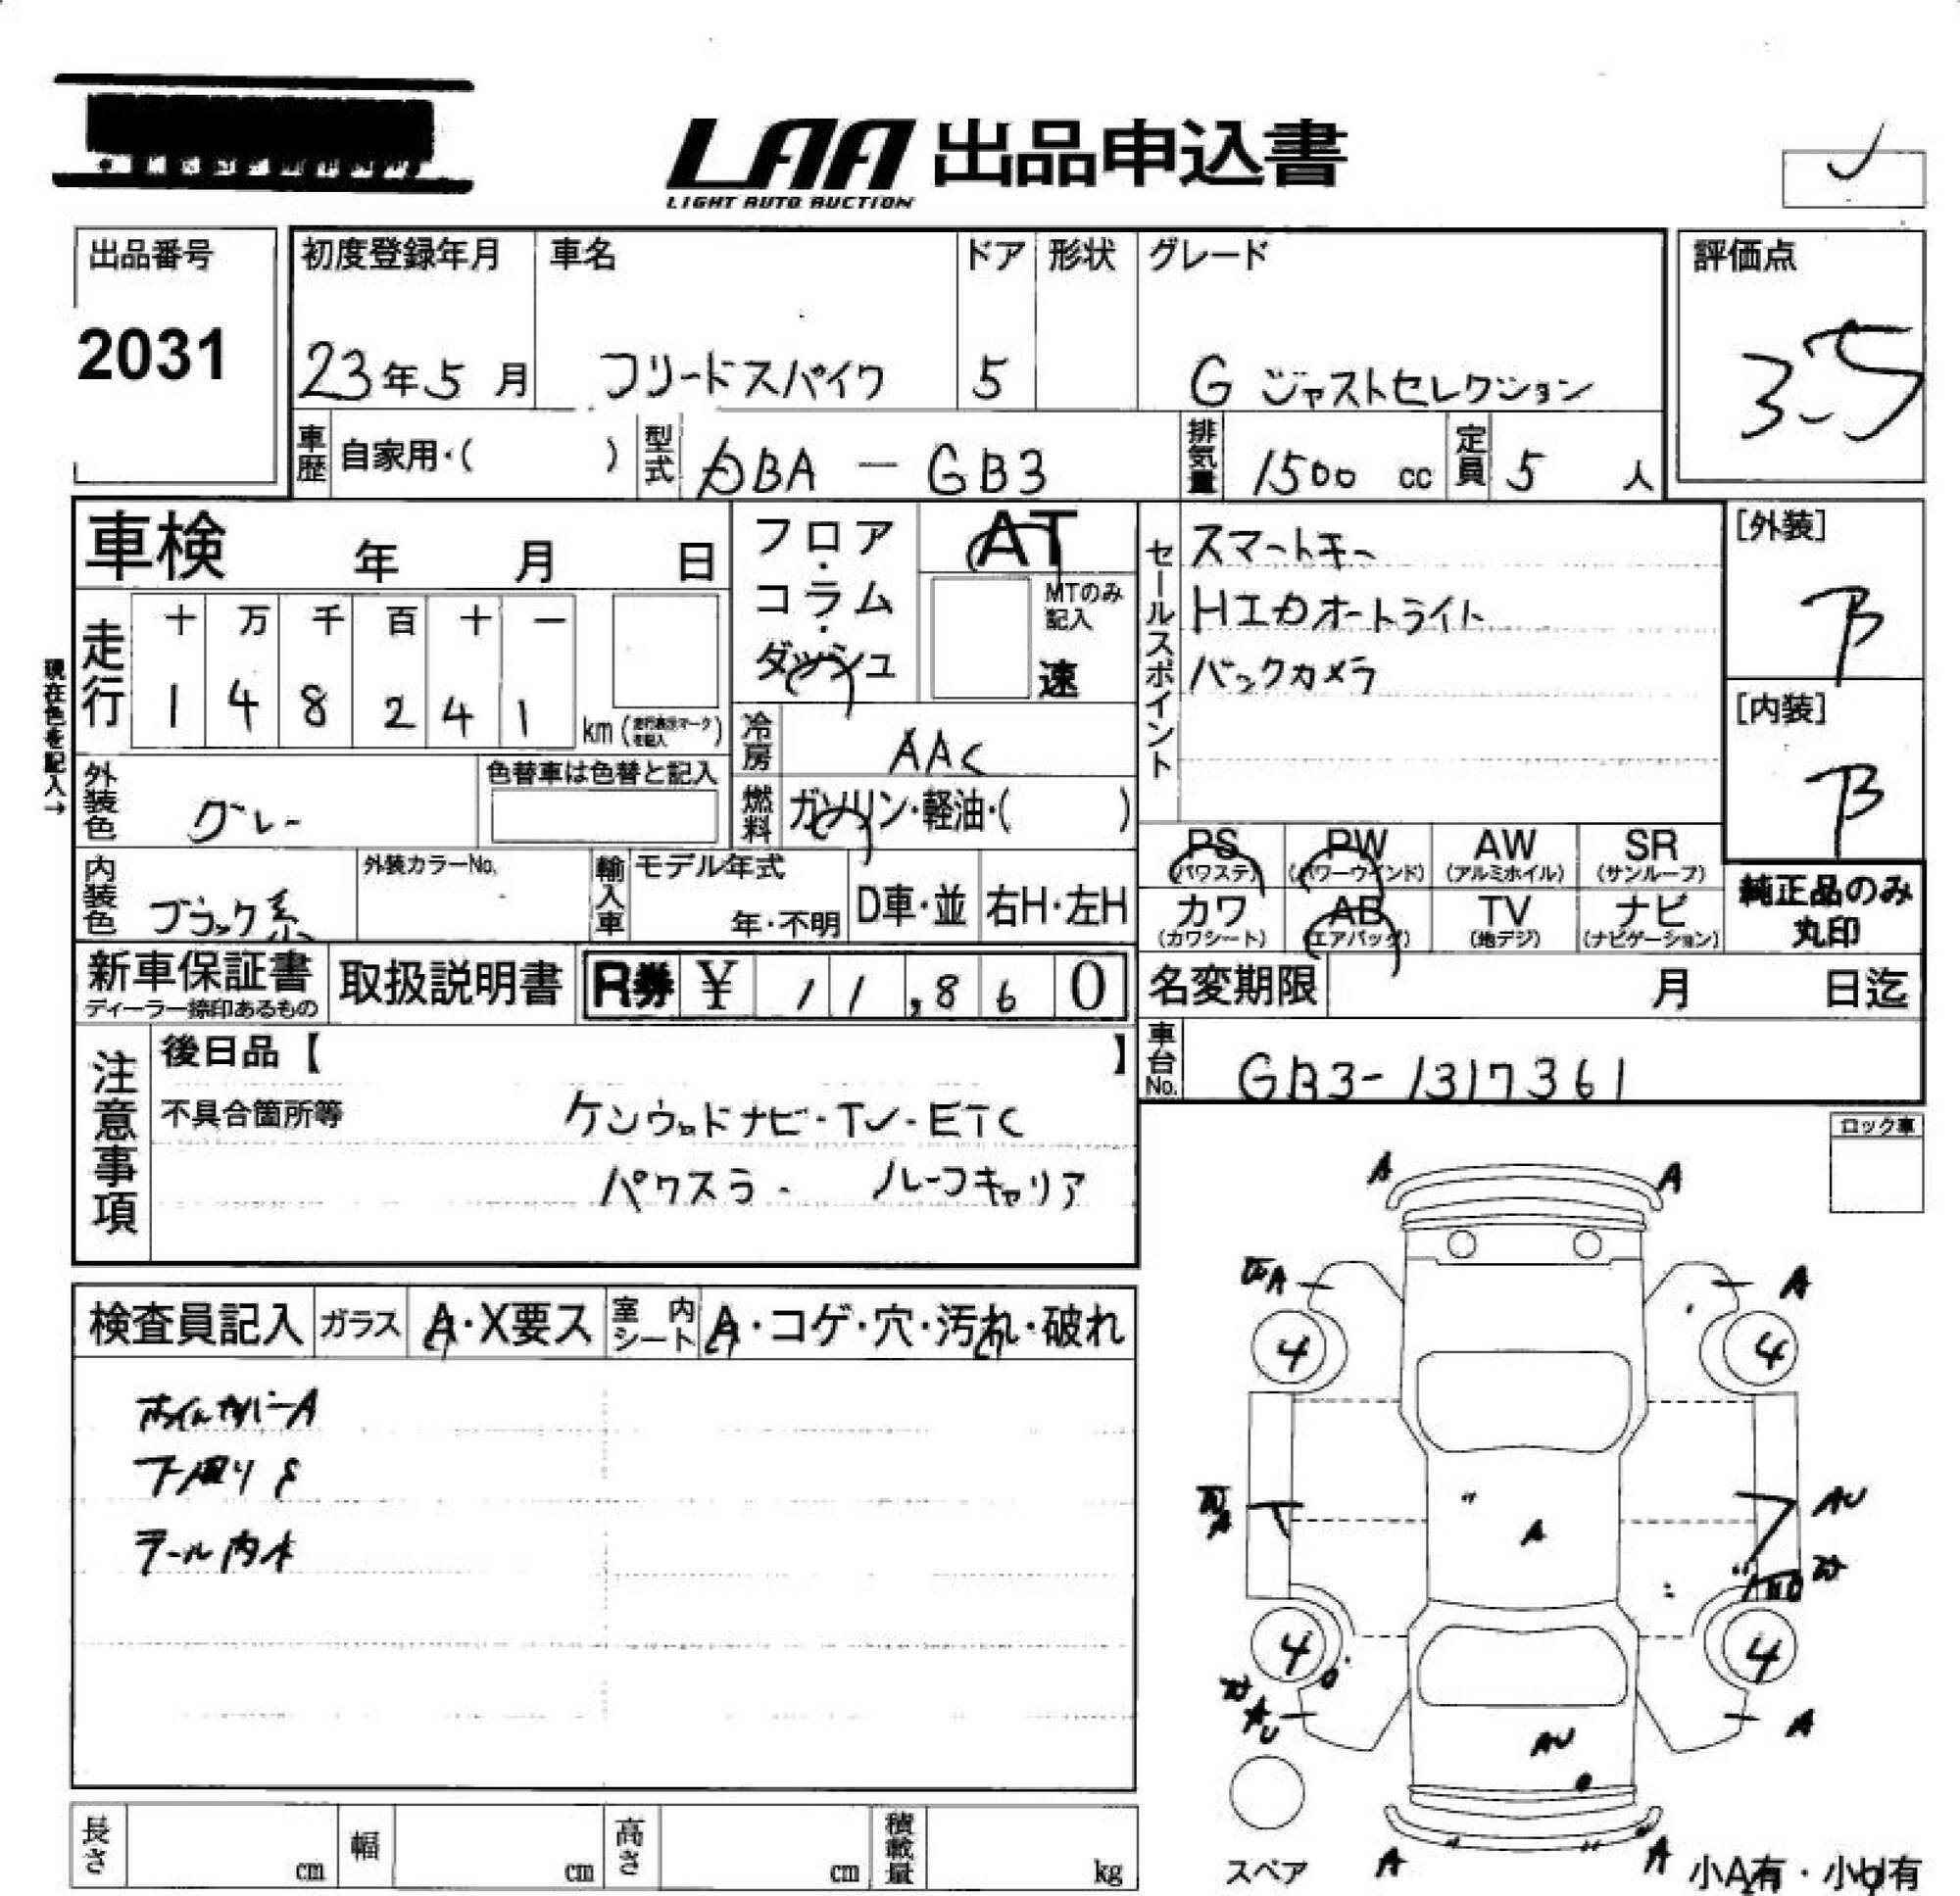 LAA 出品申込書
LIGHT AUTO AUCTION
出品番号
2031
初度登録年月
23年5月
車名
フリードスパイク
ドア
5
形状
グレード
G ジャストセレクション
評価点
3.5
車歴 自家用・( )
型式 DBA - GB3
排気量 1500 cc
定員 5 人
車検 年 月 日
フロア・コラム・ダッシュ
AT
MTのみ記入
速
セールスポイント
スマートキー
HIDオートライト
バックカメラ
[外装]
B
[内装]
B
現在色を記入→
走行
十 万 千 百 十 一
1 4 8 2 4 1
km (走行表示マークを記入)
冷房 AAC
外装色 グレー
色替車は色替と記入
燃料 ガソリン・軽油・( )
内装色 ブラック系
外装カラーNo.
輸入車 モデル年式
年・不明
D車・並
右H・左H
PS PW AW SR
(パワステ) (パワーウインド) (アルミホイル) (サンルーフ)
カワ AB TV ナビ
(カワシート) (エアバッグ) (地デジ) (ナビゲーション)
純正品のみ
丸印
新車保証書
ディーラー捺印あるもの
取扱説明書
R券 ¥ 11,860
名変期限 月 日迄
車台No. GB3-1317361
注意事項
後日品【 】
不具合箇所等
ケンウッドナビ・TV・ETC
パワスラ・ ルーフキャリア
ロック車
検査員記入
ガラス A・X要ス
室内シート A・コゲ・穴・汚れ・破れ
ホイルカバーA
下廻りS
テール内水
A A
A A
4 4
A AU
A
4 4
AU A
AU
A A
スペア
小A有・小U有
長さ cm
幅 cm
高さ cm
積載量 kg